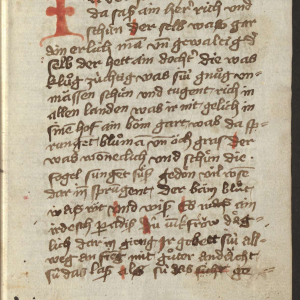 da saß ain herr rich und
schün Der selb waß gar
ain erlich ma vn gewaltig d
selb der hett ain docht die was
klůg züchtig was sü gnůg un
massen schün und tugent rich in
allen landen was ir nit gelich in
sine hof ain bom gart was da sp
runget blůma vn och graß Der
was woneclich und schün die
fogel sunget süß gedön vn rose
dar in sprungent der bäm blůt
was rot und wiß Es waß ain
irdesch pardiß Die iuckfrow dag
lich dar in gieng ir gebett sü all
weg an fieng mit gůter andacht
sü das laß Als sü das buch